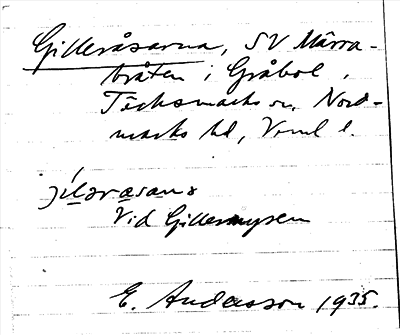 Gilleråsarna, SV Mårra-
bråten i Gråbol,
Töcksmarks sn, Nord-
marks hd, Vrml l.
Vid Gillermyren
E. Andersson 1935.